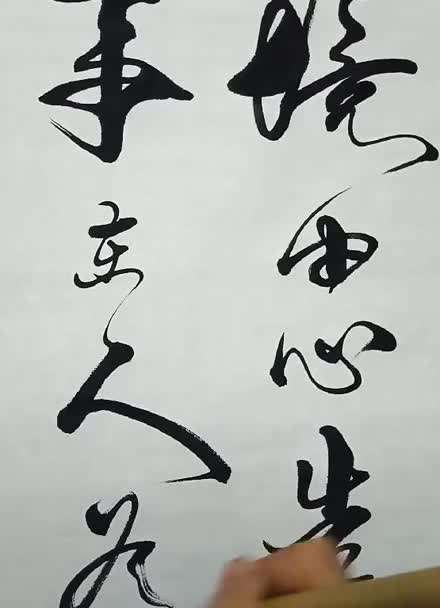 境由心造
事在人为